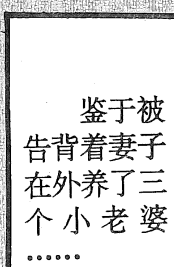 鉴于被
告背着妻子
在外养了三
个小老婆
……